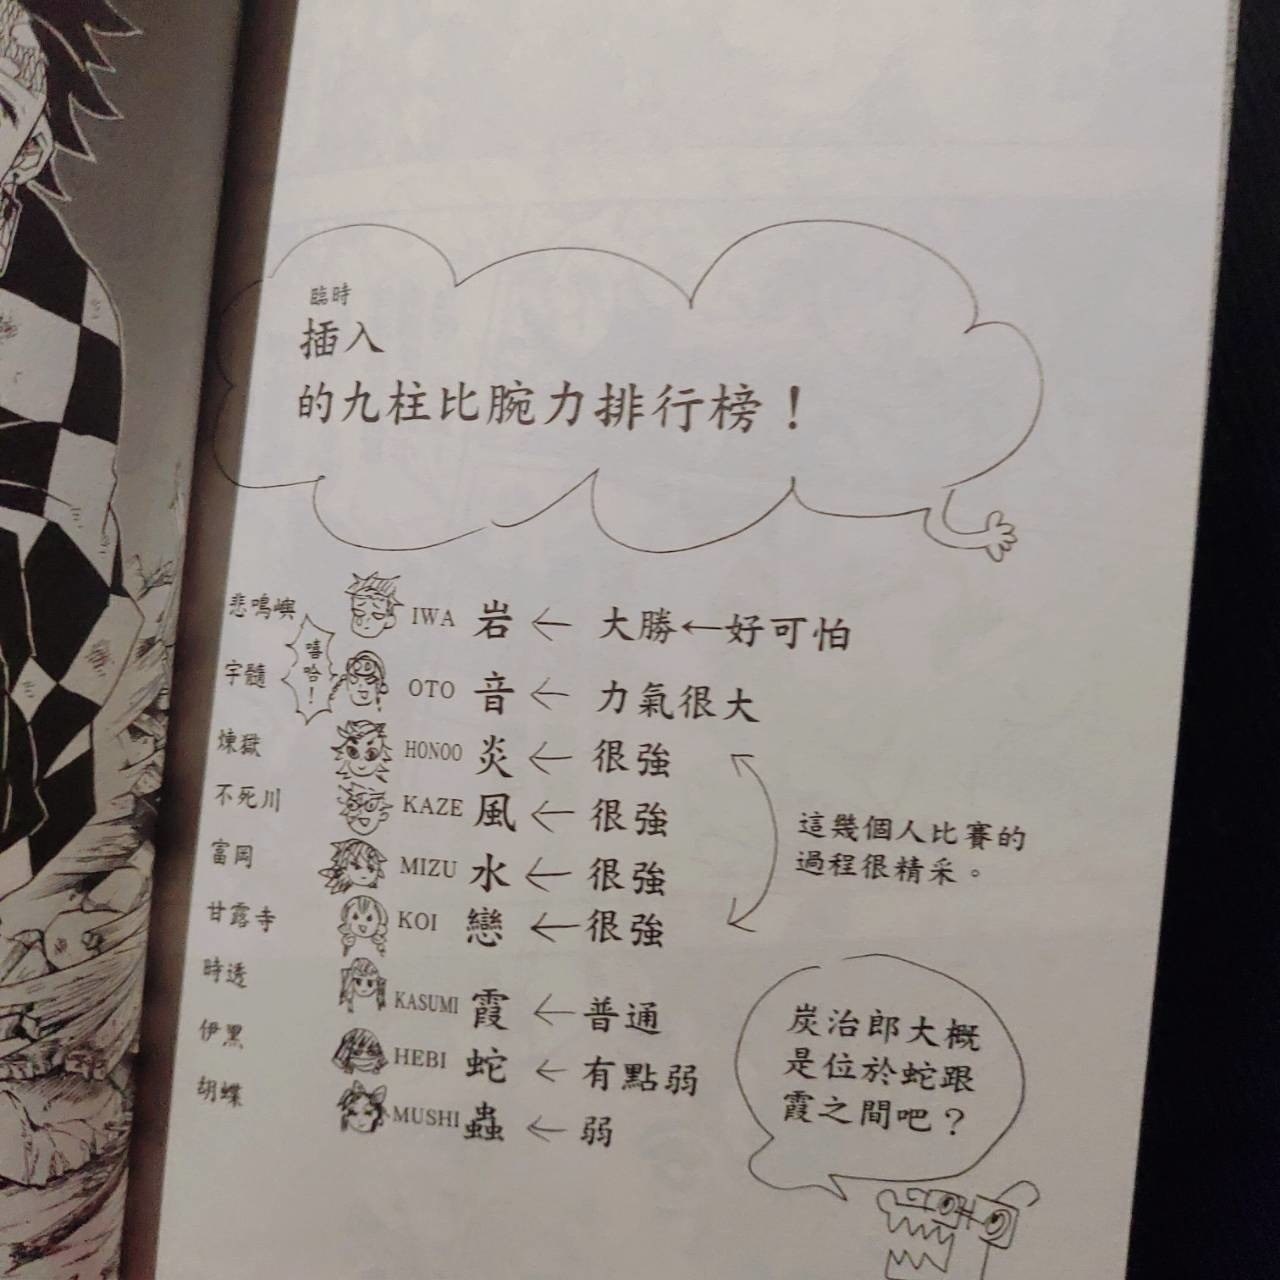 臨時
插入
的九柱比腕力排行榜！
悲鳴嶼 IWA 岩 ← 大勝←好可怕
嘻哈！
宇髓 OTO 音 ← 力氣很大
煉獄 HONOO 炎 ← 很強
不死川 KAZE 風 ← 很強
富岡 MIZU 水 ← 很強
甘露寺 KOI 戀 ← 很強
這幾個人比賽的
過程很精采。
時透 KASUMI 霞 ← 普通
伊黑 HEBI 蛇 ← 有點弱
胡蝶 MUSHI 蟲 ← 弱
炭治郎大概
是位於蛇跟
霞之間吧？